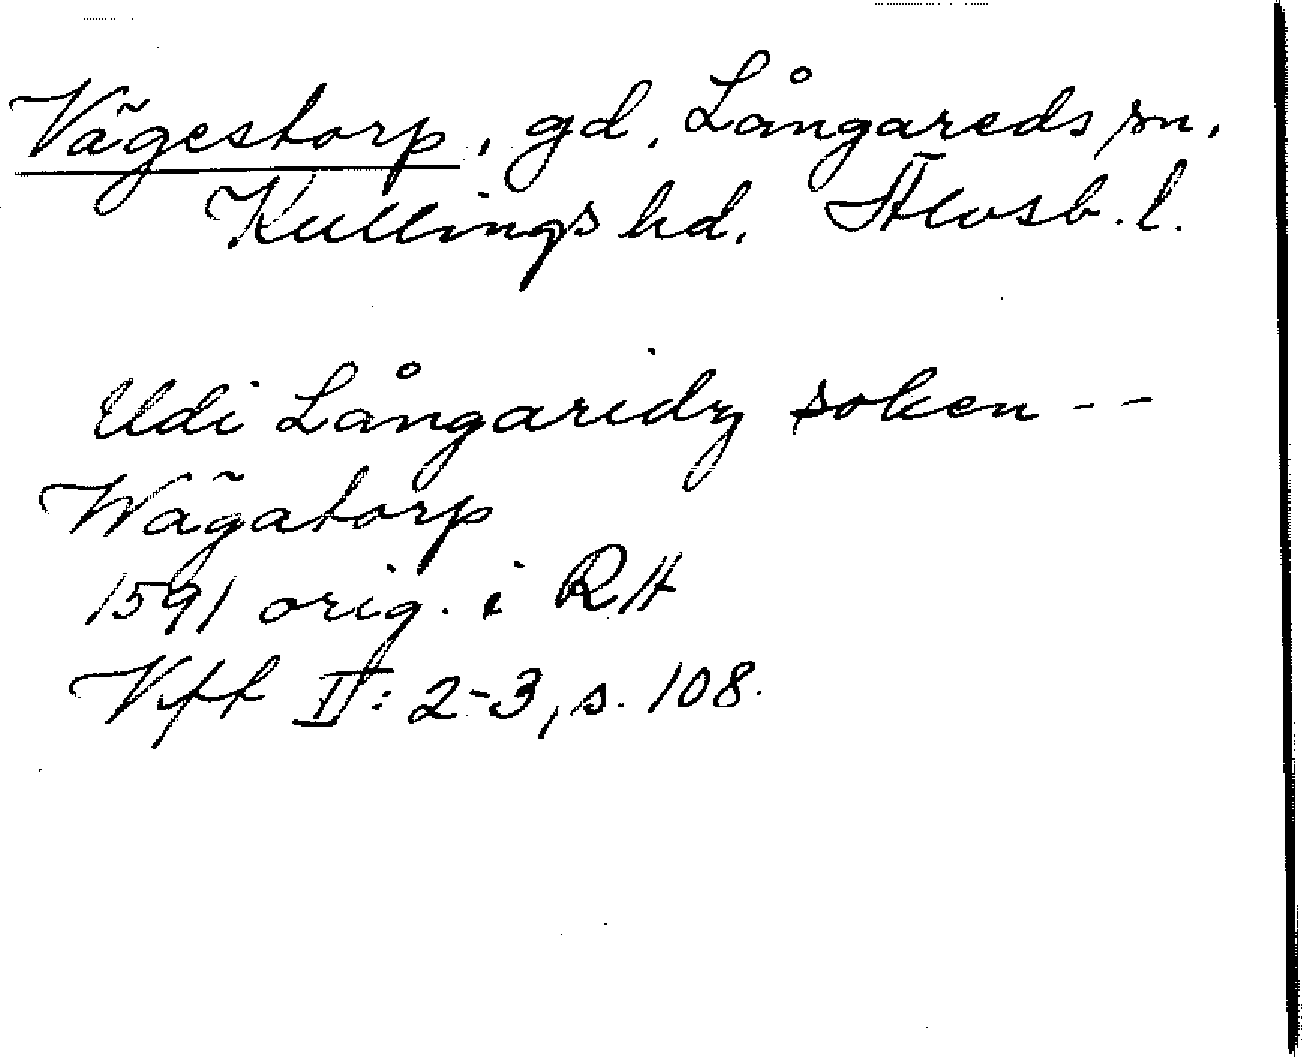 Vägestorp, gd, Långareds sn,
Kullings hd. Älvsb. l.
Udi Långaridz soken --
Wägatorp
1591 orig. i RH
Vft II: 2-3, s. 108.